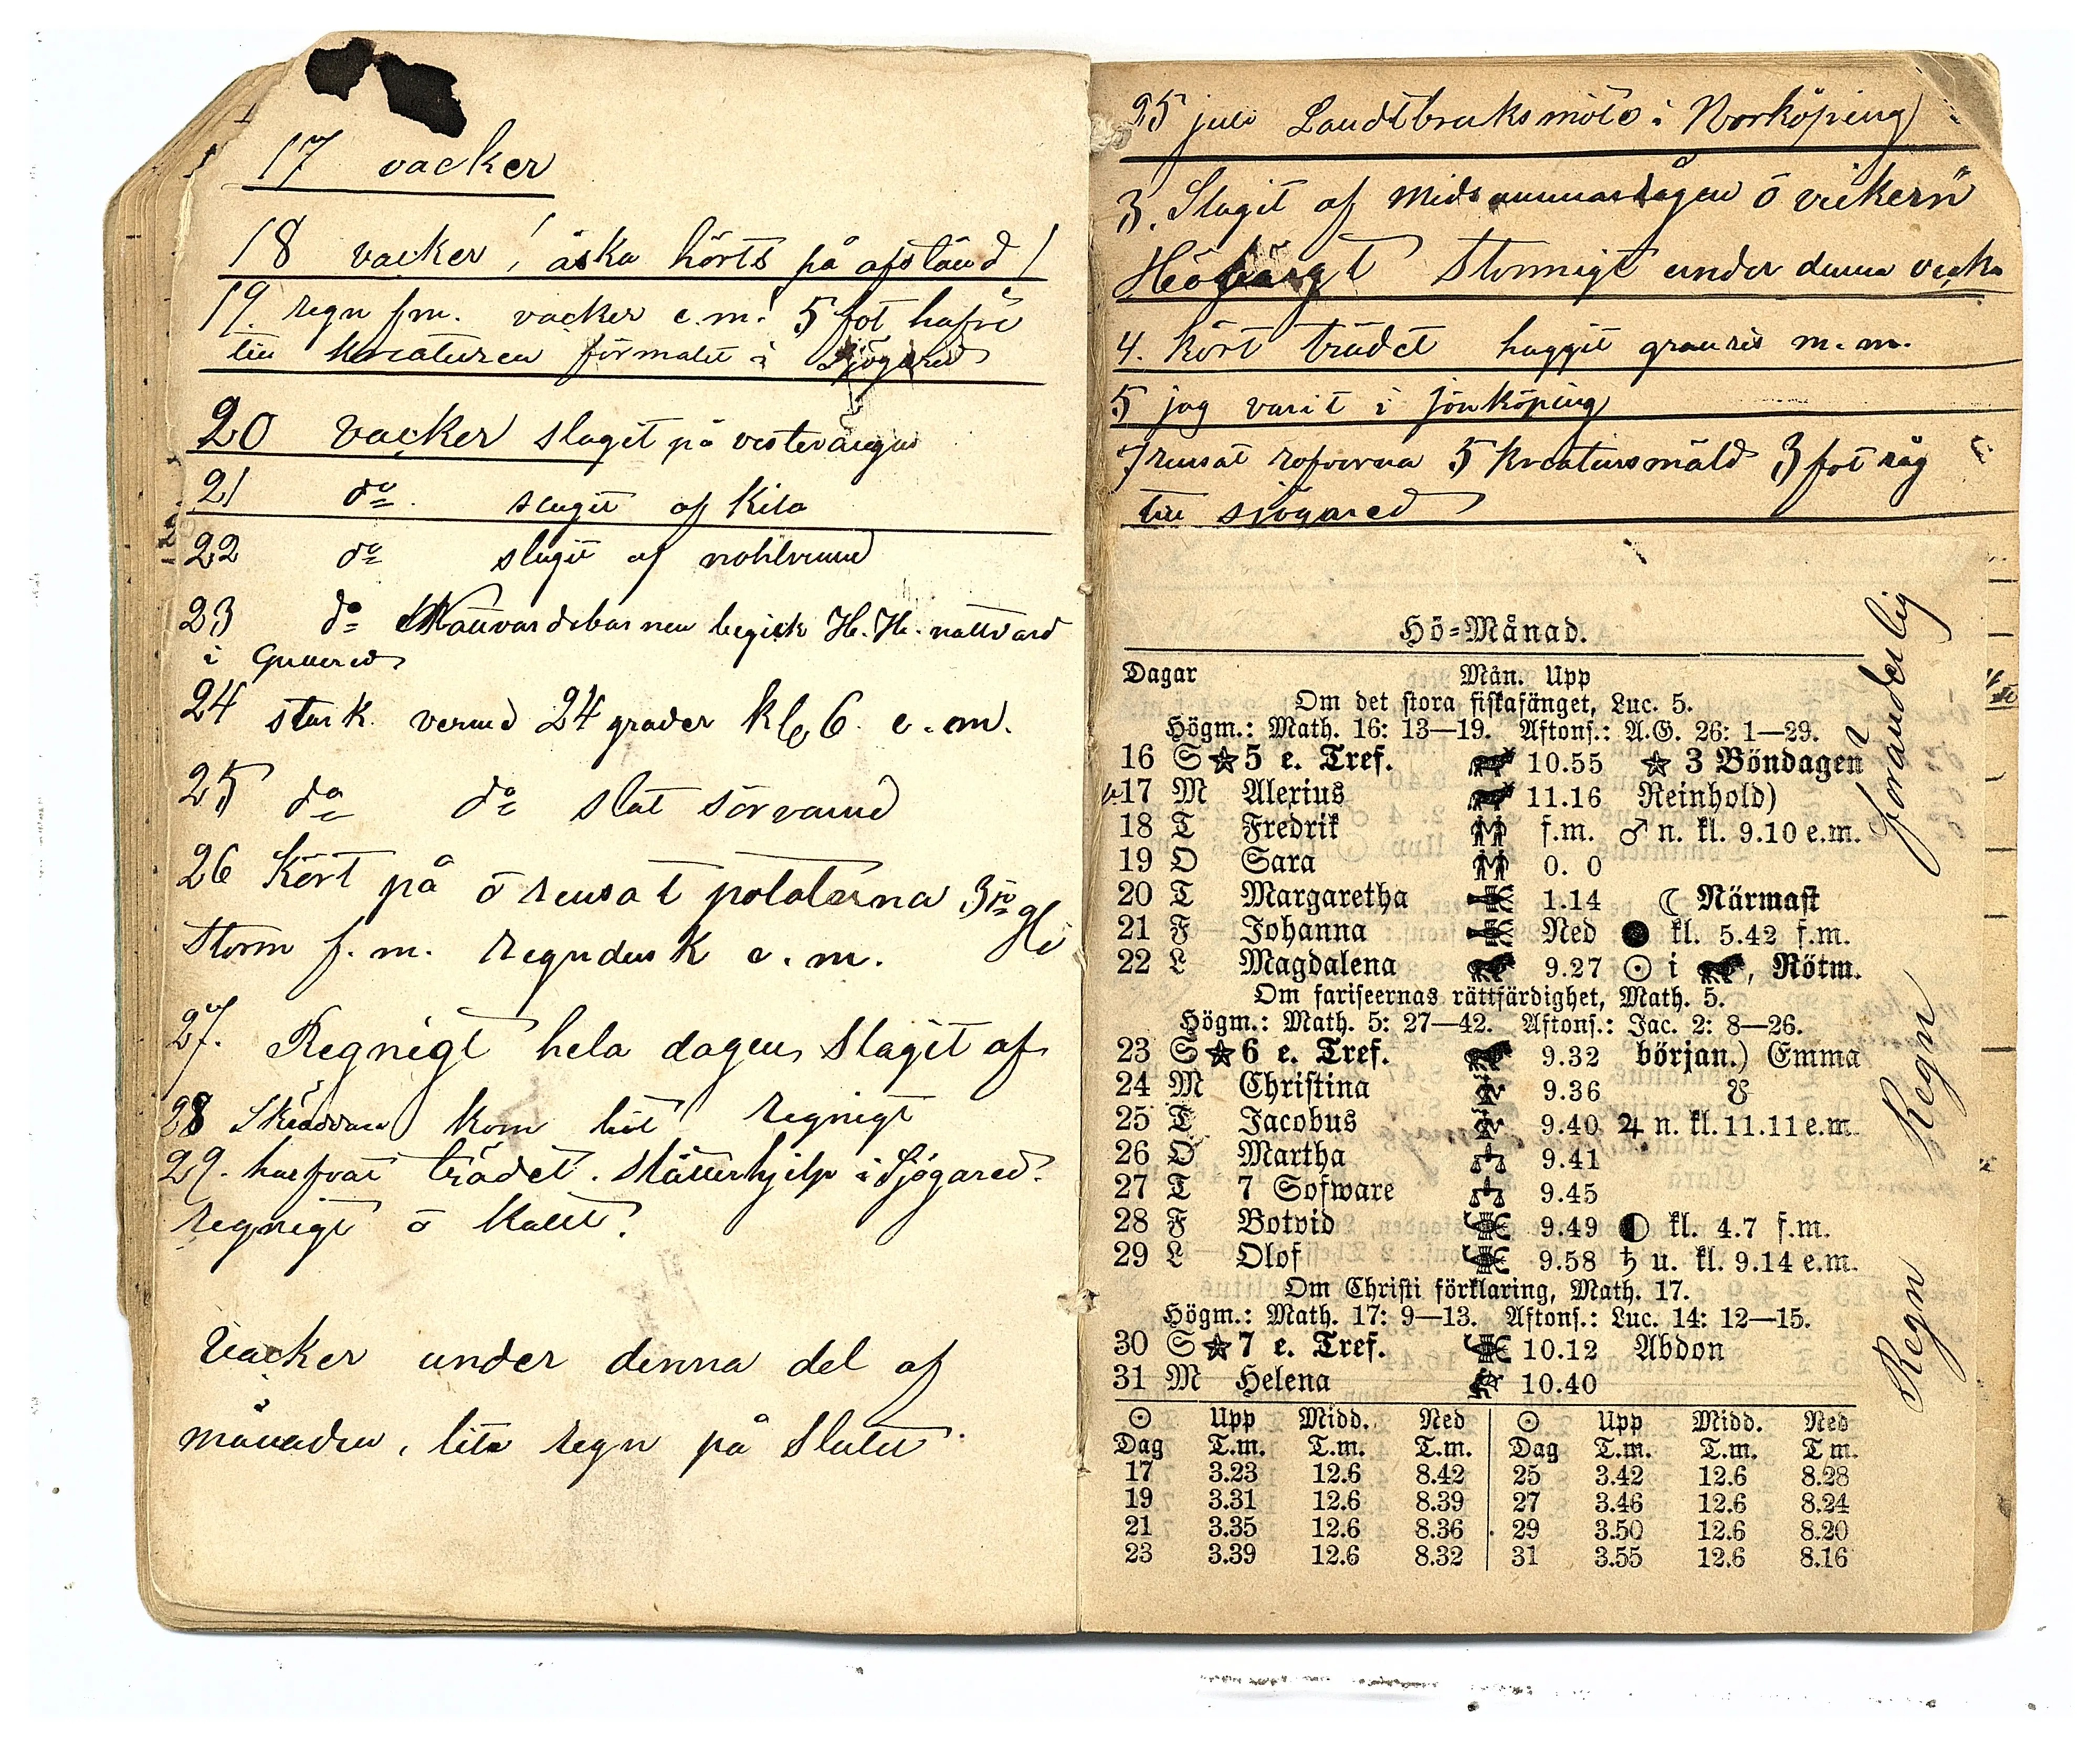 17 vacker
18 vacker / åska hörts på afstånd /
19. regn fm. vacker e.m. 5 fot hafre
till kreaturen förmalet i Sjögared
20 vacker slagit på vesterängen
21 do slagit af Kila
22 do slagit af
23 do Nattvardsbarnen begick H. H. nattvard
i
24 stark verme 24 grader kl 6 e.m.
25 do do slåt
26 Kört på ö rensat potaterna 3ne
Storm f.m. regndusk e.m.
27. Regnigt hela dagen slagit af
28 Skräddaren kom hit regnigt
29. harfvat trädet. slåtterhjelp i Sjögared.
regnigt ö kallt.
Vacker under denna del af
månaden, lite regn på slutet.
25 juli Landtbruksmöte i Norköping
3. Slagit af midsommars ö
Höbärgt Stormigt under denna vecka
4. kört trädet huggit granris m.m.
5 jag varit i jönköping
7 rensat rofvorna 5 kreatursmäld 3 fot råg
till sjögared
Hö-Månad.
Dagar Mån. Upp
Om det stora fiskafänget, Luc. 5.
Högm.: Math. 16: 13—19. Aftons.: A.G. 26: 1—29.
16 S ★ 5 e. Tref. 10.55 ★ 3 Böndagen
17 M Alexius 11.16 Reinhold)
18 T Fredrik f.m. ♂ n. kl. 9.10 e.m.
19 O Sara 0. 0
20 T Margaretha 1.14 ☾ Närmast
21 F Johanna Ned ● kl. 5.42 f.m.
22 L Magdalena 9.27 ☉ i ♌, Rötm.
Om fariseernas rättfärdighet, Math. 5.
Högm.: Math. 5: 27—42. Aftons.: Jac. 2: 8—26.
23 S ★ 6 e. Tref. 9.32 början.) Emma
24 M Christina 9.36 ☋
25 T Jacobus 9.40 ♃ n. kl. 11.11 e.m.
26 O Martha 9.41
27 T 7 Sofware 9.45
28 F Botvid 9.49 ◐ kl. 4.7 f.m.
29 L Olof 9.58 ♄ u. kl. 9.14 e.m.
Om Christi förklaring, Math. 17.
Högm.: Math. 17: 9—13. Aftons.: Luc. 14: 12—15.
30 S ★ 7 e. Tref. 10.12 Abdon
31 M Helena 10.40
☉ Upp Midd. Ned ☉ Upp Midd. Ned
Dag T.m. T.m. T.m. Dag T.m. T.m. T m.
17 3.23 12.6 8.42 25 3.42 12.6 8.28
19 3.31 12.6 8.39 27 3.46 12.6 8.24
21 3.35 12.6 8.36 29 3.50 12.6 8.20
23 3.39 12.6 8.32 31 3.55 12.6 8.16
föränderlig
Regn
Regn